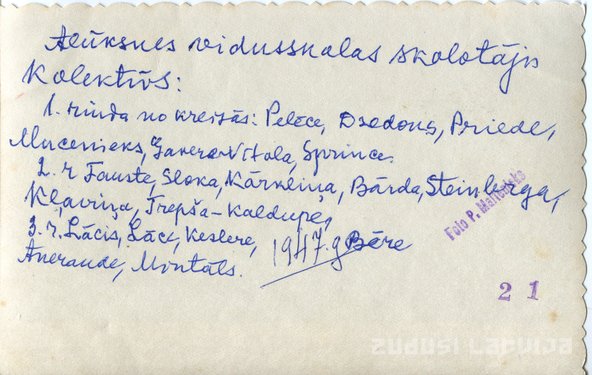 Alūksnes vidusskolas skolotāju
Kolektīvs:
1. rinda no kreisās: Pelēce, Dzedons, Priede,
Mucenieks, Vītola, Sprince
2. r Fauste, Sloka, Kārkliņa, Bārda, Steinberga,
Kļaviņa, Trepša-Kaldupe,
3. r. Lācis, Lāce, Keslere, 1947.g Bēre
Aneraude, Mintāls.
Foto P. 
21
zudusi Latvija